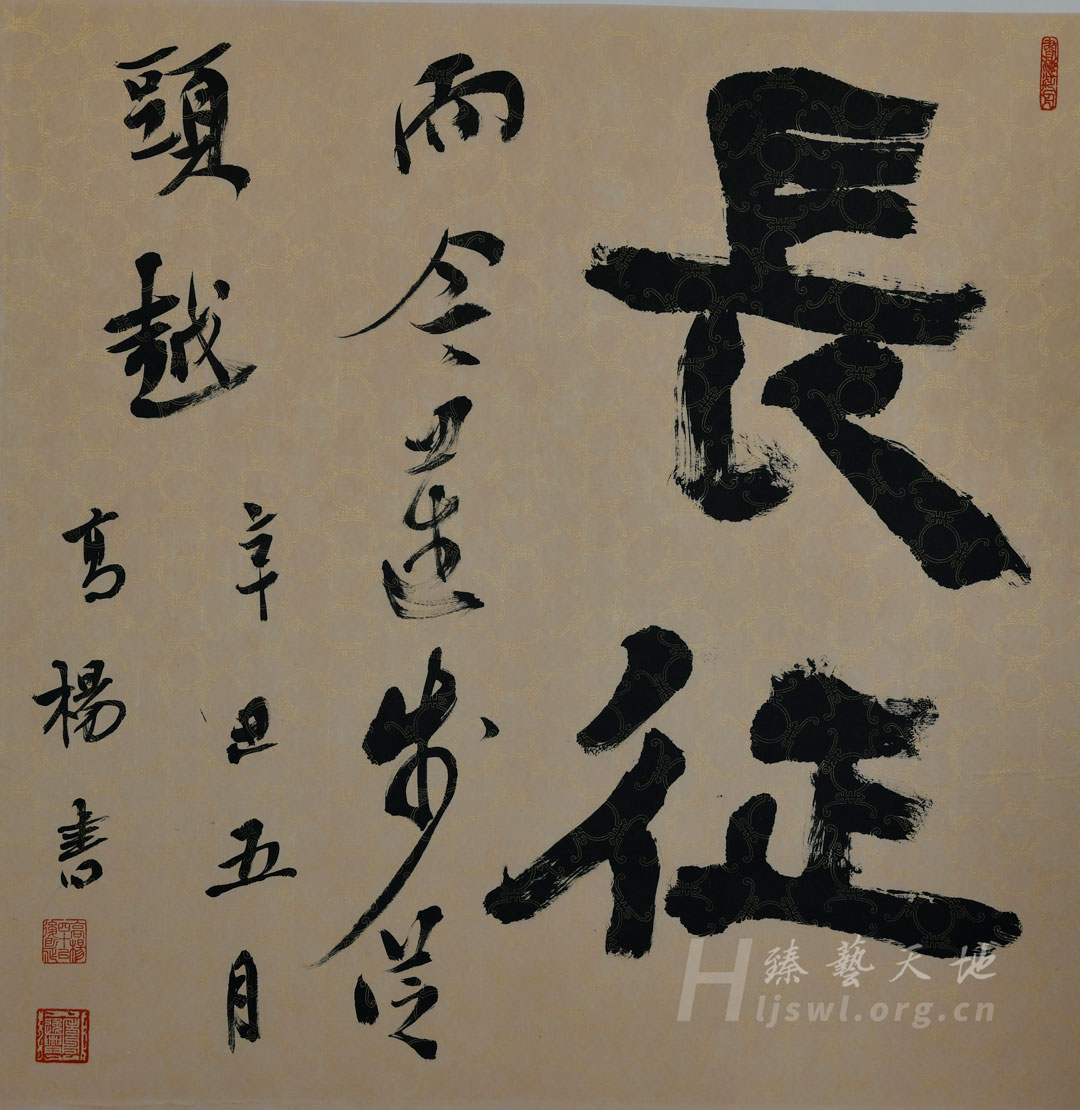 長征
而今邁步從
頭越
辛丑五月
高楊書
臻藝天地
Hljswl.org.cn